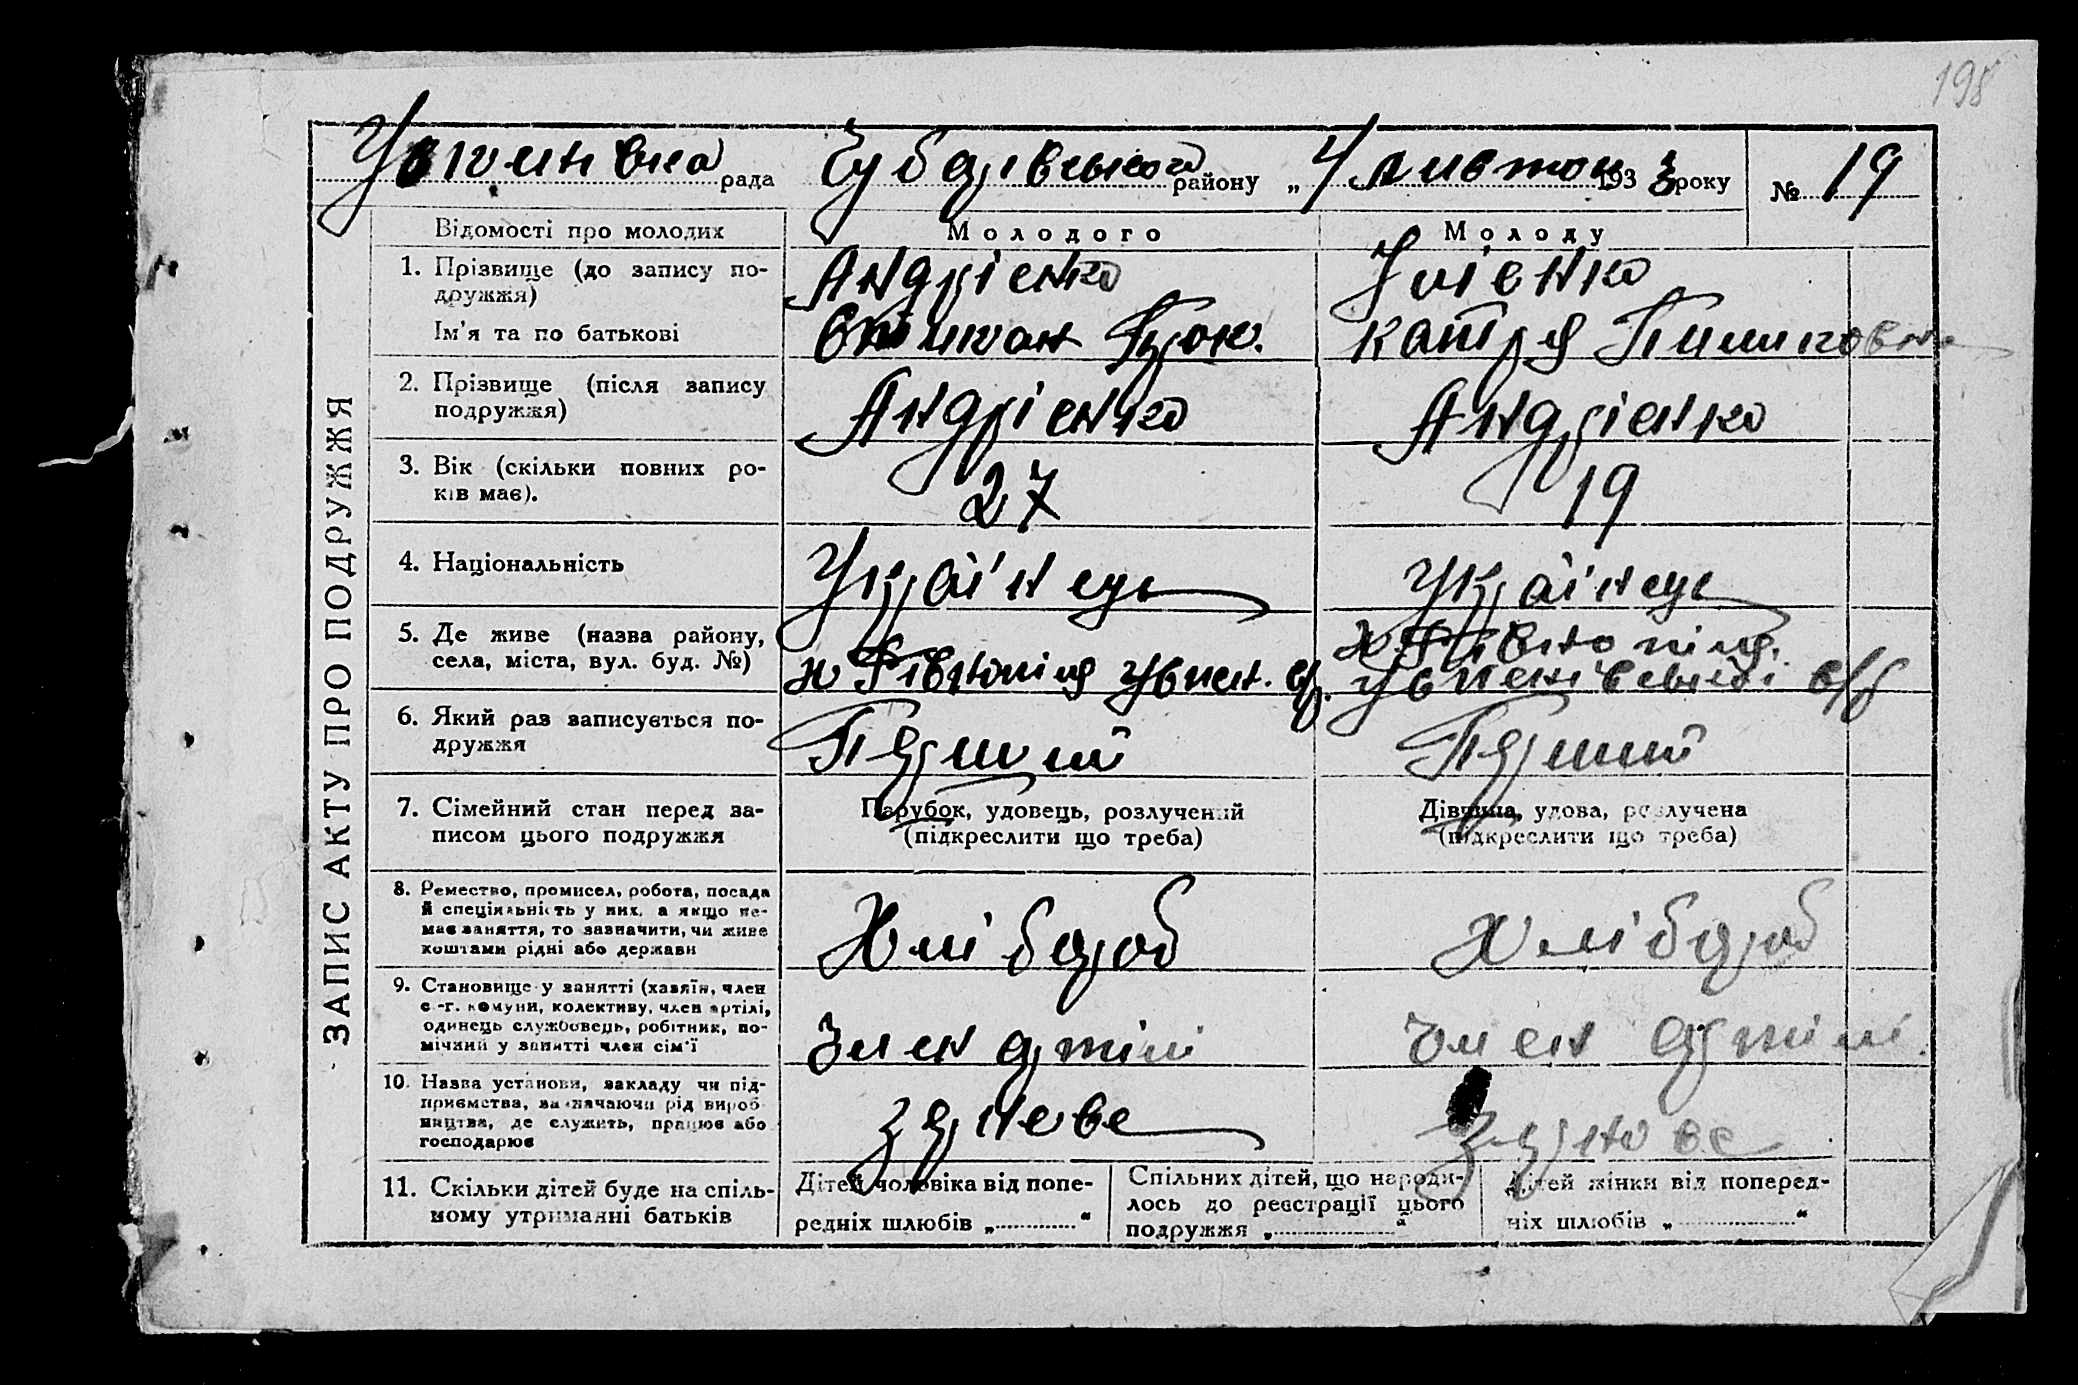 198
рада Чубарівського району „ 4 листоп 193 3 року № 19
ЗАПИС АКТУ ПРО ПОДРУЖЖЯ
Відомості про молодих Молодого Молоду
1. Прізвище (до запису по- Андрієнко
дружжя)
Ім'я та по батькові Катря
2. Прізвище (після запису Андрієнко Андрієнко
подружжя)
3. Вік (скільки повних ро- 27 19
ків має).
4. Національність Українець Українець
5. Де живе (назва району,
села, міста, вул. буд. №)
6. Який раз записується по- Перший Перший
дружжя
7. Сімейний стан перед за- Парубок, удовець, розлучений Дівчина, удова, розлучена
писом цього подружжя (підкреслити що треба) (підкреслити що треба)
8. Ремество, промисел, робота, посада Хлібороб Хлібороб
й спеціяльність у них, а якщо не-
має заняття, то зазначити, чи живе
коштами рідні або держави
9. Становище у занятті (хазяїн, член Член артілі Член артілі
с.-г. комуни, колективу, член артілі,
одинець службовець, робітник, по-
мічний у занятті член сім'ї
10. Назва установи, закладу чи під- Зернове Зернове
приємства, зазначаючи рід вироб-
ництва, де служить, працює або
господарює
11. Скільки дітей буде на спіль- Дітей чоловіка від попе- Спільних дітей, що народи- Дітей жінки від поперед-
ному утриманні батьків редніх шлюбів „ “ лось до реєстрації цього ніх шлюбів „ “
подружжя „ “